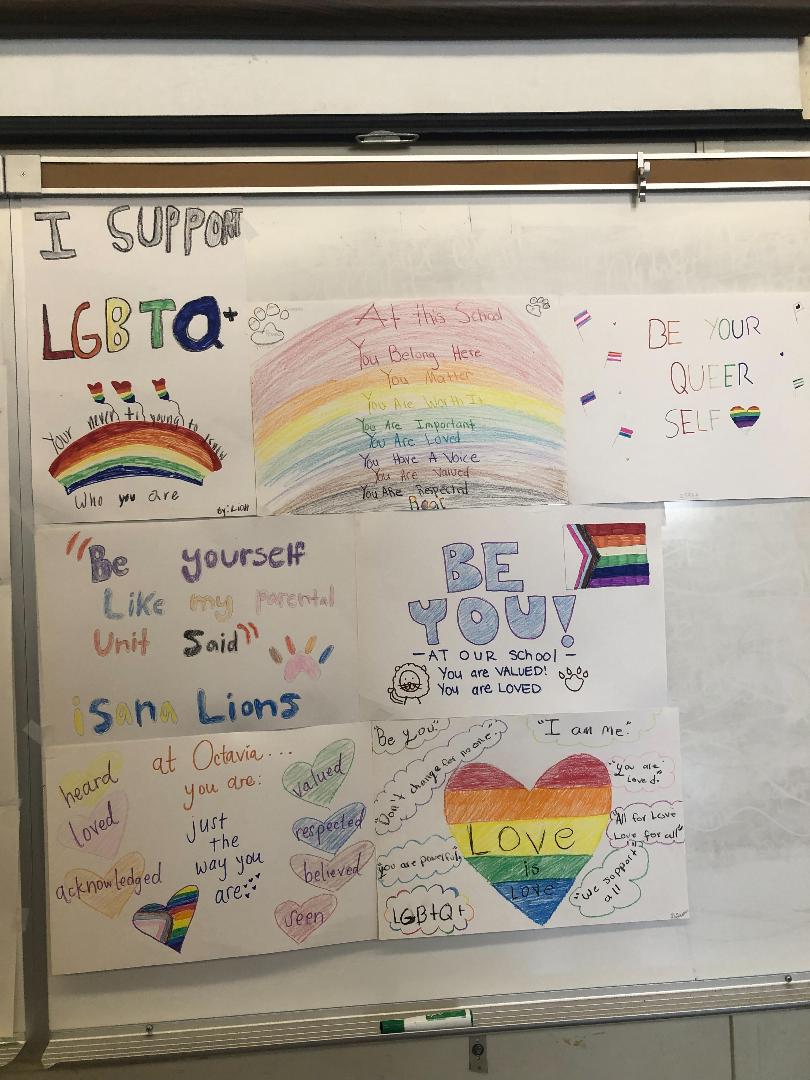 I SUPPORT
LGBTQ+
Your never to young to know
Who you are
At this School
You Belong Here
You Matter
You Are Worth It
You Are Important
You Are Loved
You Have A Voice
You Are Valued
You Are Respected
BE YOUR
QUEER
SELF
"Be yourself
Like my parental
Unit Said"
isana Lions
BE
YOU!
-AT OUR SCHOOL-
You are VALUED!
You are LOVED
at Octavia...
you are:
heard
loved
acknowledged
just
the
way you
are
valued
respected
believed
seen
"Be you"
"Don't change for no one."
"you are powerful"
LGBTQ+
LOVE
is
LOVE
"I am me."
"you are
loved"
"All for Love
Love for all"
"We support
all"